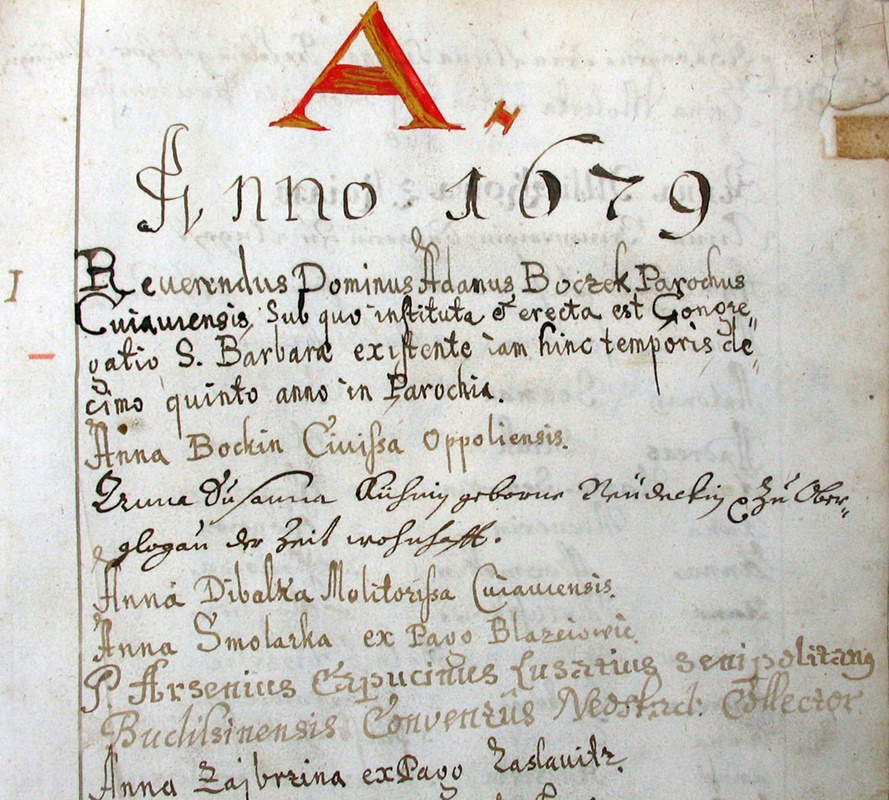 A.
Anno 1679
1
Reverendus Dominus Adamus Boczek Parochus
Cuiauiensis, Sub quo instituta et erecta est Congre„
gatio S. Barbaræ existente iam hinc temporis de„
cimo quinto anno in Parochia.
Anna Bockin Ciuissa Oppoliensis.
Anna Susanna Kühnin geborne Neüdeckin zu Ober„
glogau der Zeit wohnhafft.
Anna Dibalka Molitorissa Cuiauiensis.
Anna Smolarka ex Pago Blazeiowic
P. Arsenius Capucinus Lusatius
Budissinensis Conventûs Neostad: Collector
Anna Zajbrzina ex Pago Zaslavitz.